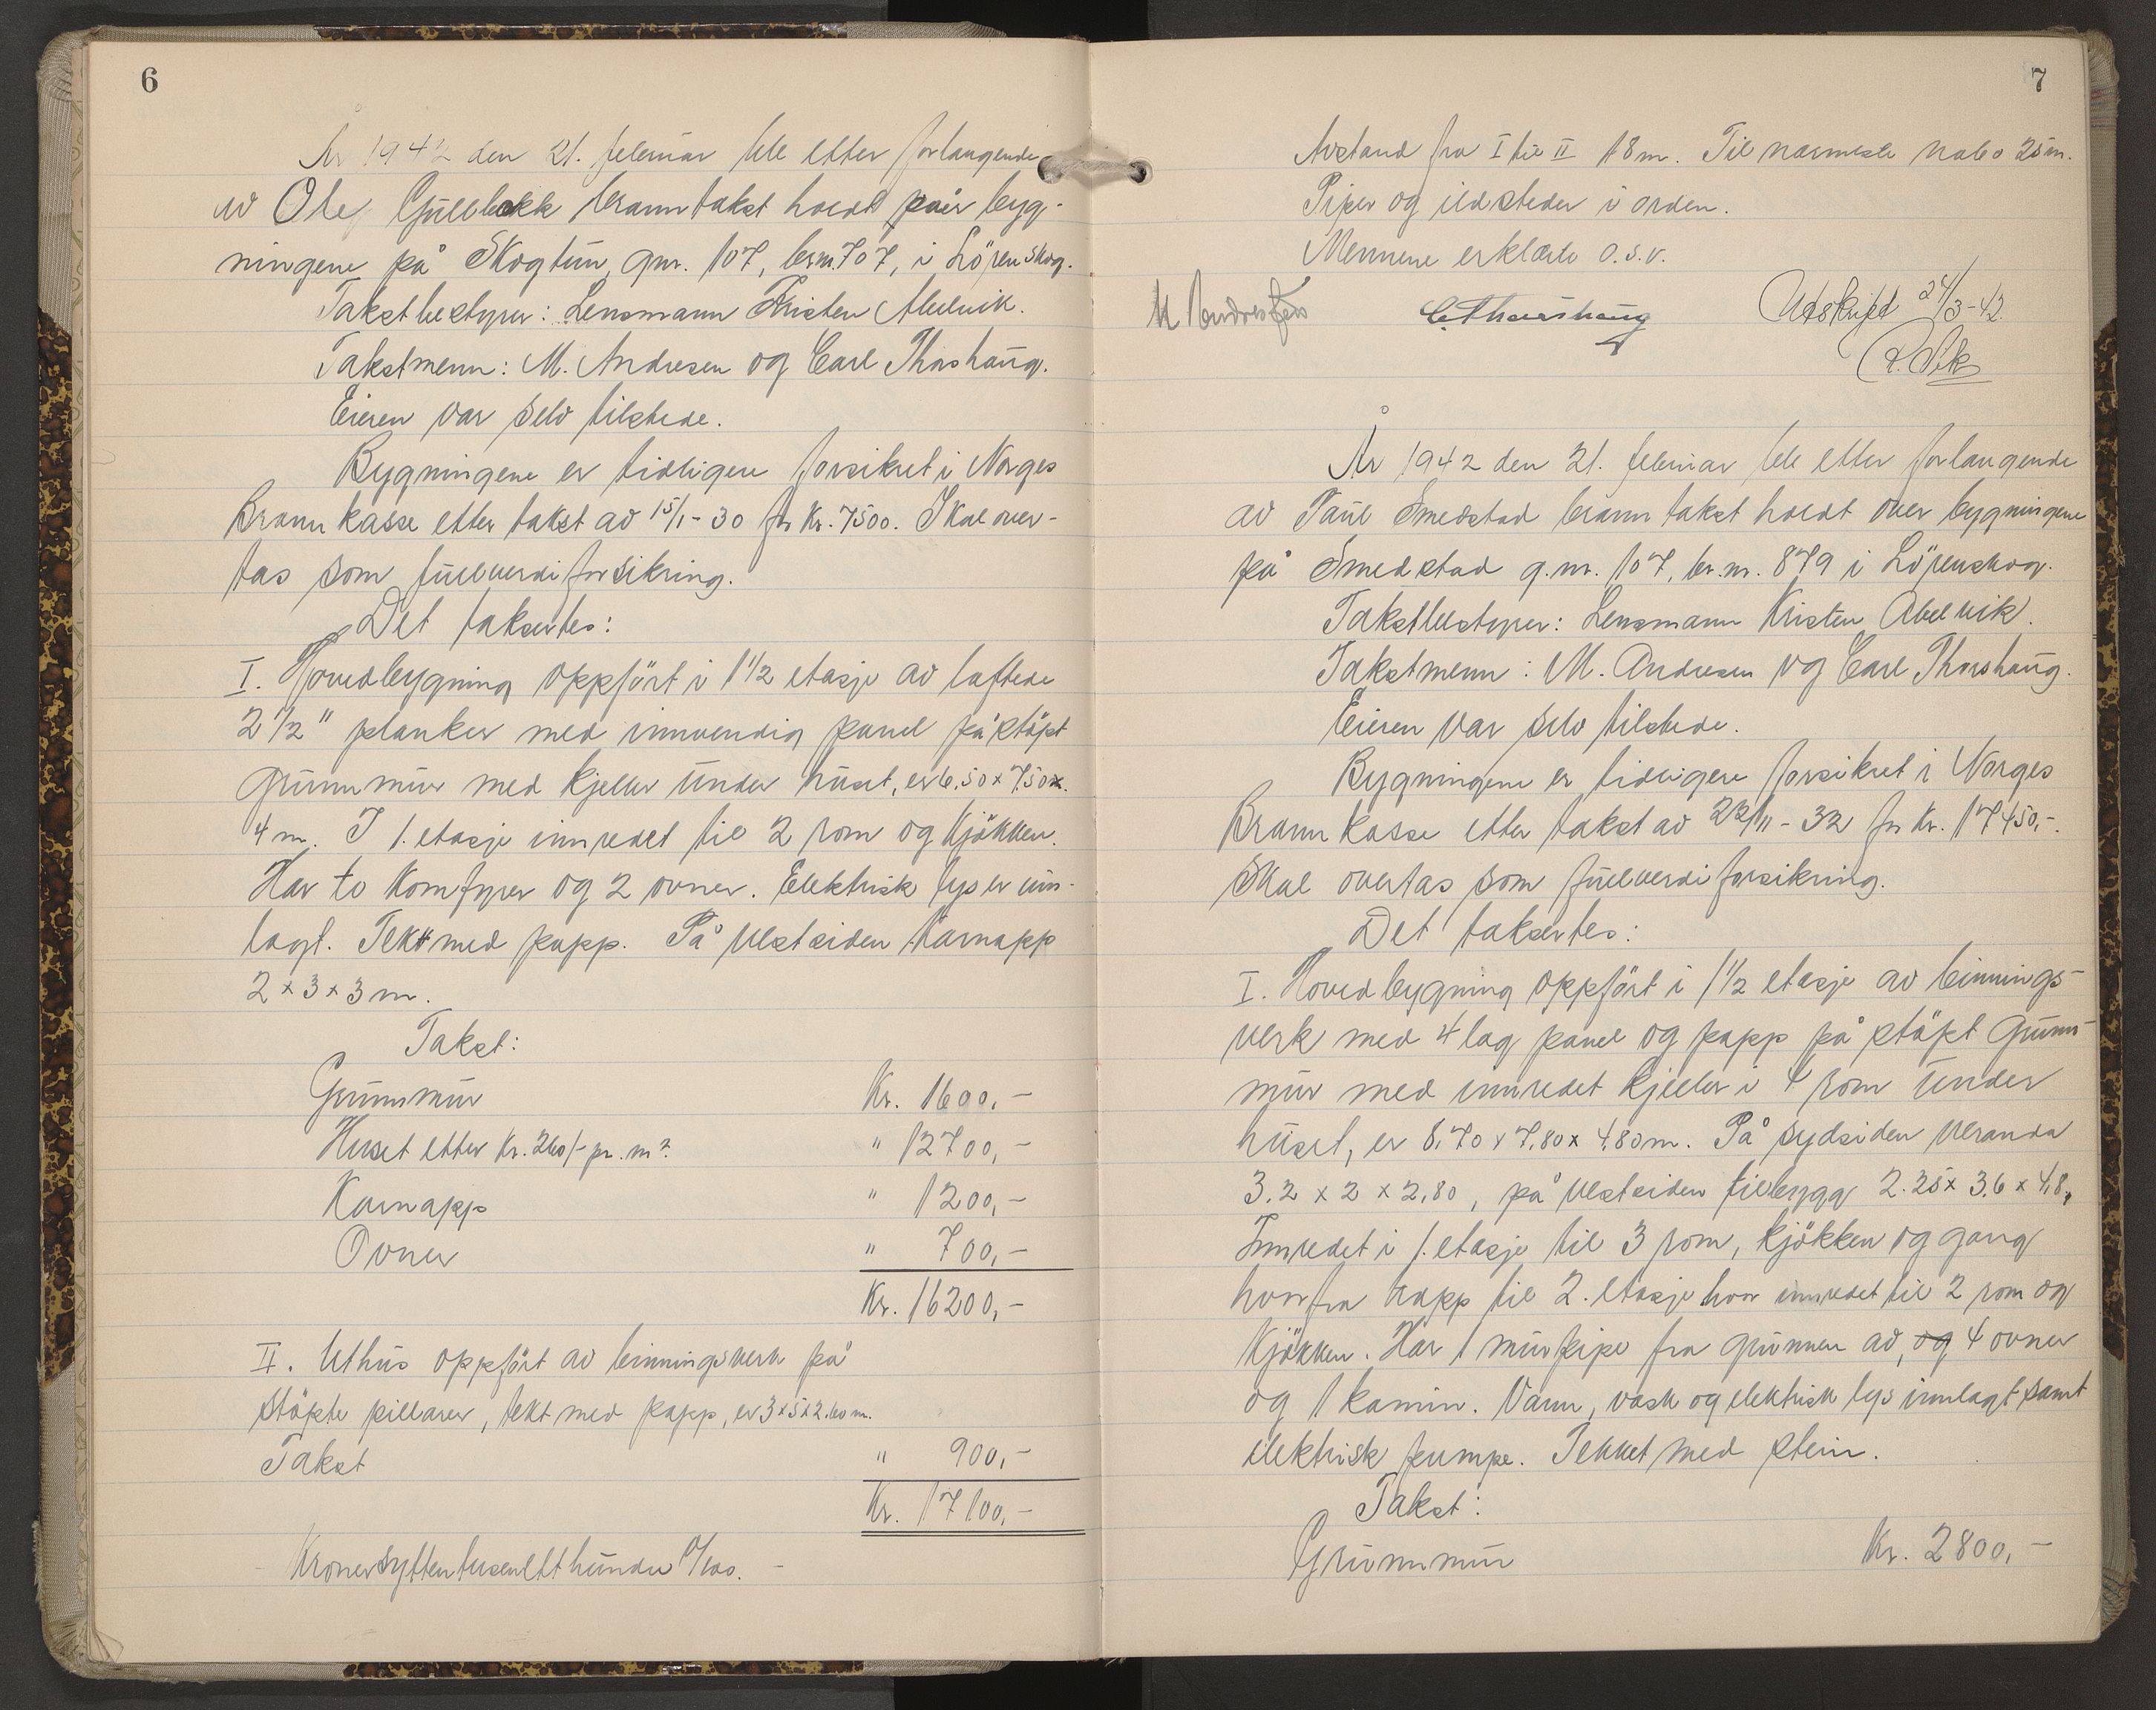 6
År 1942 den 21. februar ble etter forlangende
av Ole Gullbekk branntakst holdt på byg-
ningene på Skogtun, gnr. 107, brnr. 707, i Lörenskog.
Takstbestyrer: Lensmann Kristen Abelvik.
Takstmenn: M. Andresen og Carl Thorshaug.
Eieren var selv tilstede.
Bygningene er tidligere forsikret i Norges
Brannkasse etter takst av 15/1-30 for Kr. 7500. Skal over-
tas som fullverdiforsikring.
Det takseres:
I. Hovedbygning oppfört i 1 1/2 etasje av laftede
2 1/2" planker med innvendig panel på stöpt
grunnmur med kjeller under huset, er 6,50 x 7,50 x
4 m. I 1. etasje innredet til 2 rom og kjökken.
Har to komfyrer og 2 ovner. Elektrisk lys er inn-
lagt. Tekt med papp. På vestsiden karnapp
2 x 3 x 3 m.
Takst:
Grunnmur Kr. 1600,-
Huset etter Kr. 260/- pr. m² " 12700,-
Karnapp " 1200,-
Ovner " 700,-
Kr. 16200,-
II. Uthus oppfört av binningsverk på
stöpte pillarer, tekt med papp, er 3 x 5 x 2.60 m.
Takst " 900,-
Kr. 17100,-
- Kroner syttentusenetthundre 0/100. -
7
Avstand fra I til II 18 m. Til nærmeste nabo 25 m.
Piper og ildsteder i orden.
Mennene erklærte o.s.v.
M Andresen C. Thorshaug Utskrift 24/3-42.
R. Vik
År 1942 den 21. februar ble etter forlangende
av Paul Smedstad branntakst holdt over bygningene
på Smedstad g.nr. 107, br.nr. 879 i Lörenskog.
Takstbestyrer: Lensmann Kristen Abelvik.
Takstmenn: M. Andresen og Carl Thorshaug.
Eieren var selv tilstede.
Bygningene er tidligere forsikret i Norges
Brannkasse etter takst av 22/11-32 for Kr. 17450,-.
Skal overtas som fullverdiforsikring.
Det takseres:
I. Hovedbygning oppfört i 1 1/2 etasje av binnings-
verk med 4 lag panel og papp på stöpt grunn-
mur med innredet kjeller i 4 rom under
huset, er 8,70 x 7,80 x 4,80 m. På sydsiden veranda
3.2 x 2 x 2,80, på vestsiden tilbygg 2.25 x 3.6 x 4,8.
Innredet i 1. etasje til 3 rom, kjökken og gang
hvorfra trapp til 2. etasje hvor innredet til 2 rom og
kjökken. Har 1 murpipe fra grunnen av, og 4 ovner
og 1 kamin. Vann, vask og elektrisk lys innlagt samt
elektrisk pumpe. Tekket med stein.
Takst:
Grunnmur Kr. 2800,-